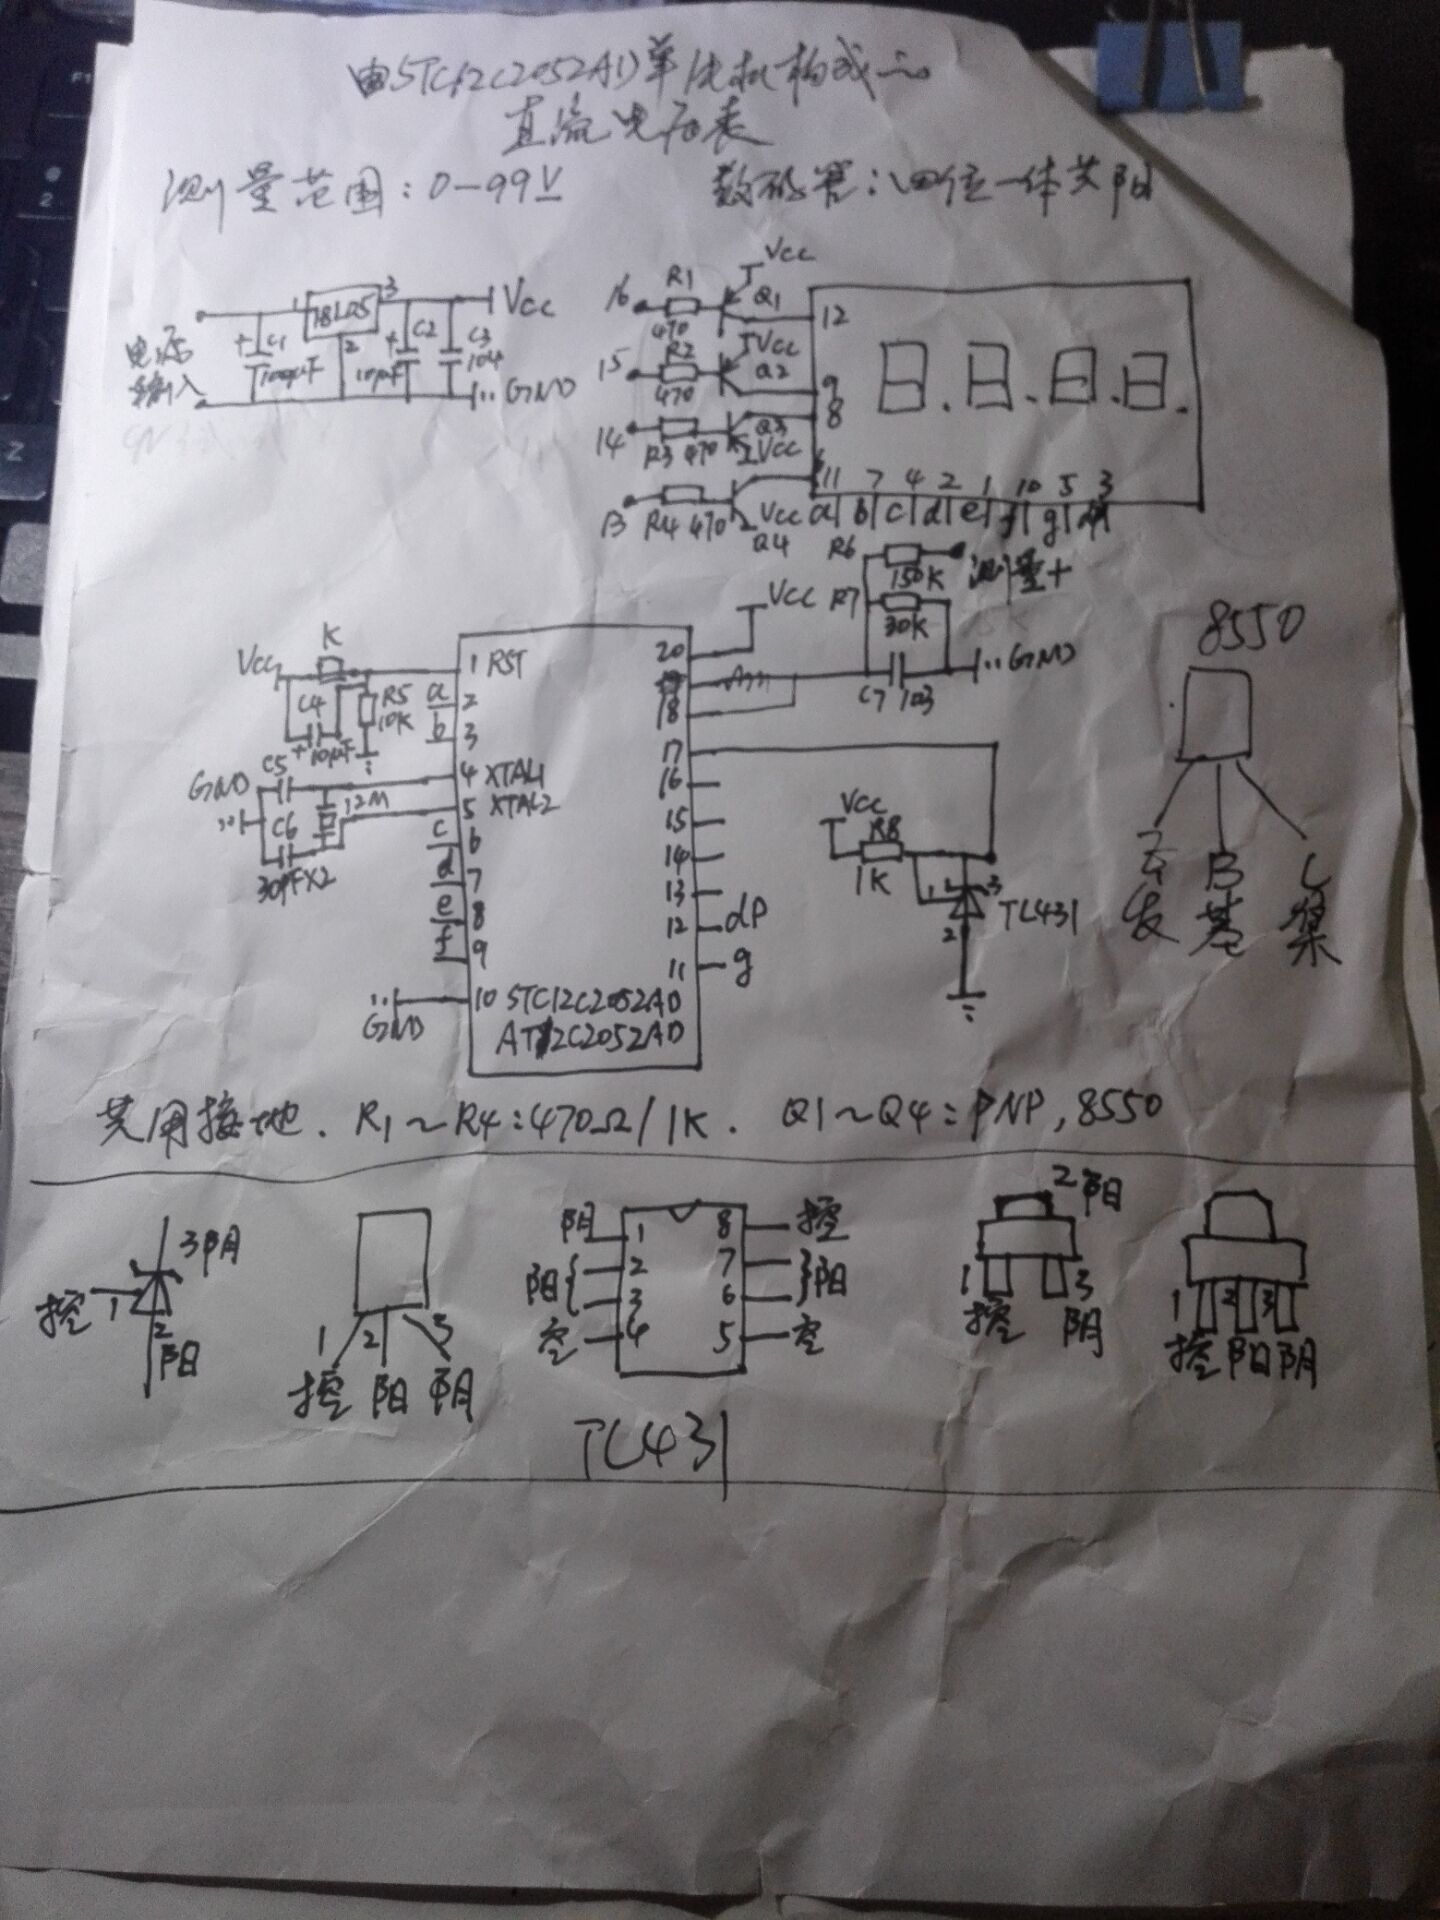 由STC12C2052AD单片机构成的
直流电压表
测量范围：0-99V 数码管：四位一体共阳
1 78L05 3 Vcc
2
电压
输入
+ C1
100μF
+ C2
10μF
C3
104
GND
16 R1 470 Vcc Q1 12
15 R2 470 Vcc Q2 9
14 R3 470 Q3 Vcc 8
13 R4 470 Vcc Q4 6
8.8.8.8.
11 7 4 2 1 10 5 3
a b c d e f g dp
R6 150K 测量+
R7 30K
C7 103 GND
Vcc K
C4
+ 10μF
R5
10K
GND C5
C6 12M
30PFX2
1 RST
a 2
b 3
4 XTAL1
5 XTAL2
c 6
d 7
e 8
f 9
GND 10
STC12C2052AD
AT12C2052AD
20 Vcc
19
18
17
16
15
14
13
12 dP
11 g
Vcc
R8
1K
1 3
2
TL431
8550
E B C
发 基 集
共用接地. R1～R4:470Ω/1K. Q1～Q4:PNP,8550
3阴
控 1
2
阳
1 2 3
控 阳 阴
阴 1 8 控
阳{ 2 7 }阳
3 6
空 4 5 空
2阳
1 3
控 阴
1 2 3
控阳阴
TL431